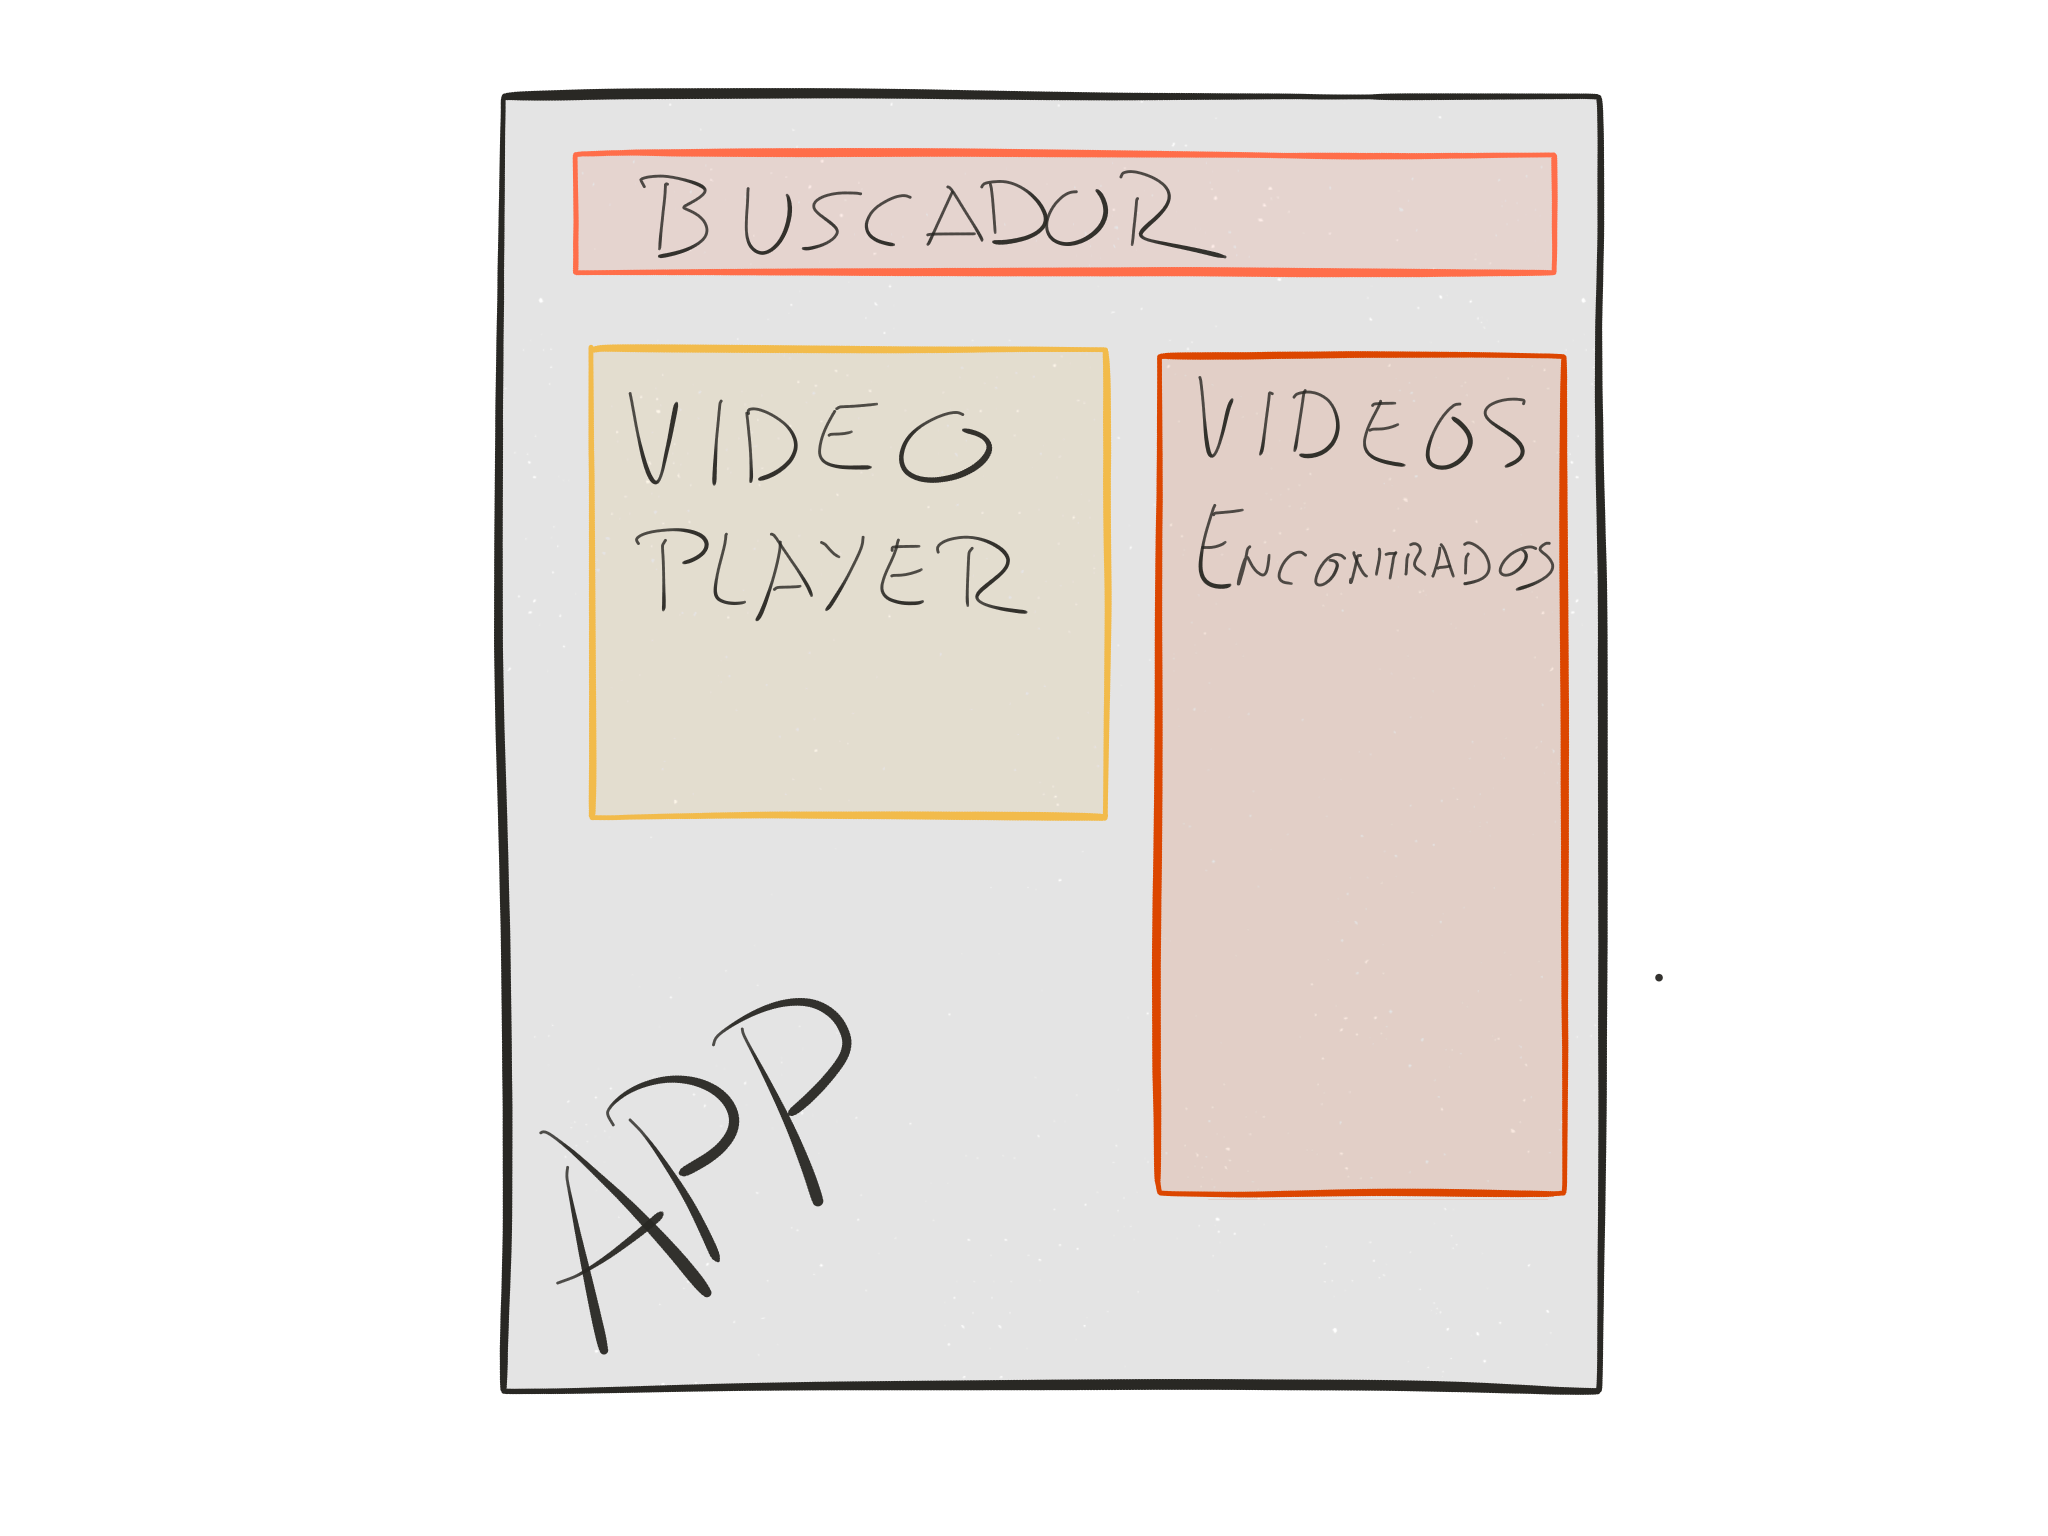 BUSCADOR
VIDEO
PLAYER
VIDEOS
ENCONTRADOS
APP